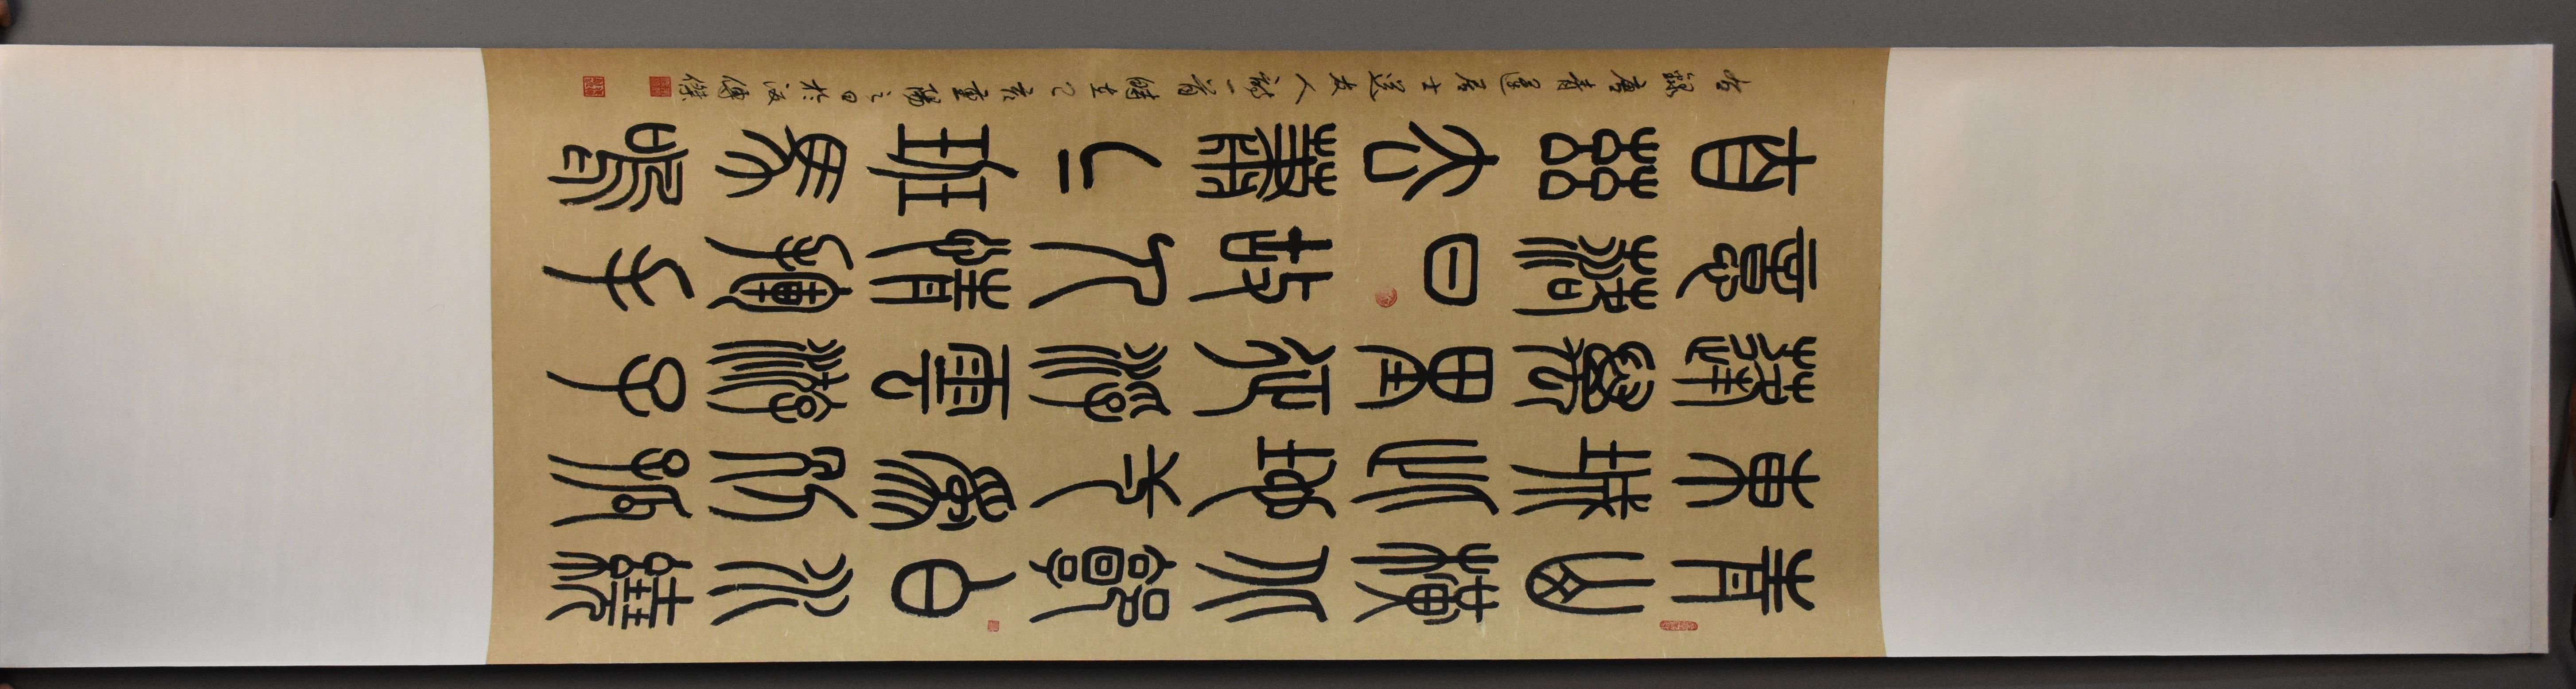 青山橫北郭白水繞
東城此地一為別孤
蓬萬里征浮雲遊子
意落日故人情揮手
自茲去蕭=班馬鳴
右錄唐青蓮居士送友人詩一首歲在己亥重陽之日於